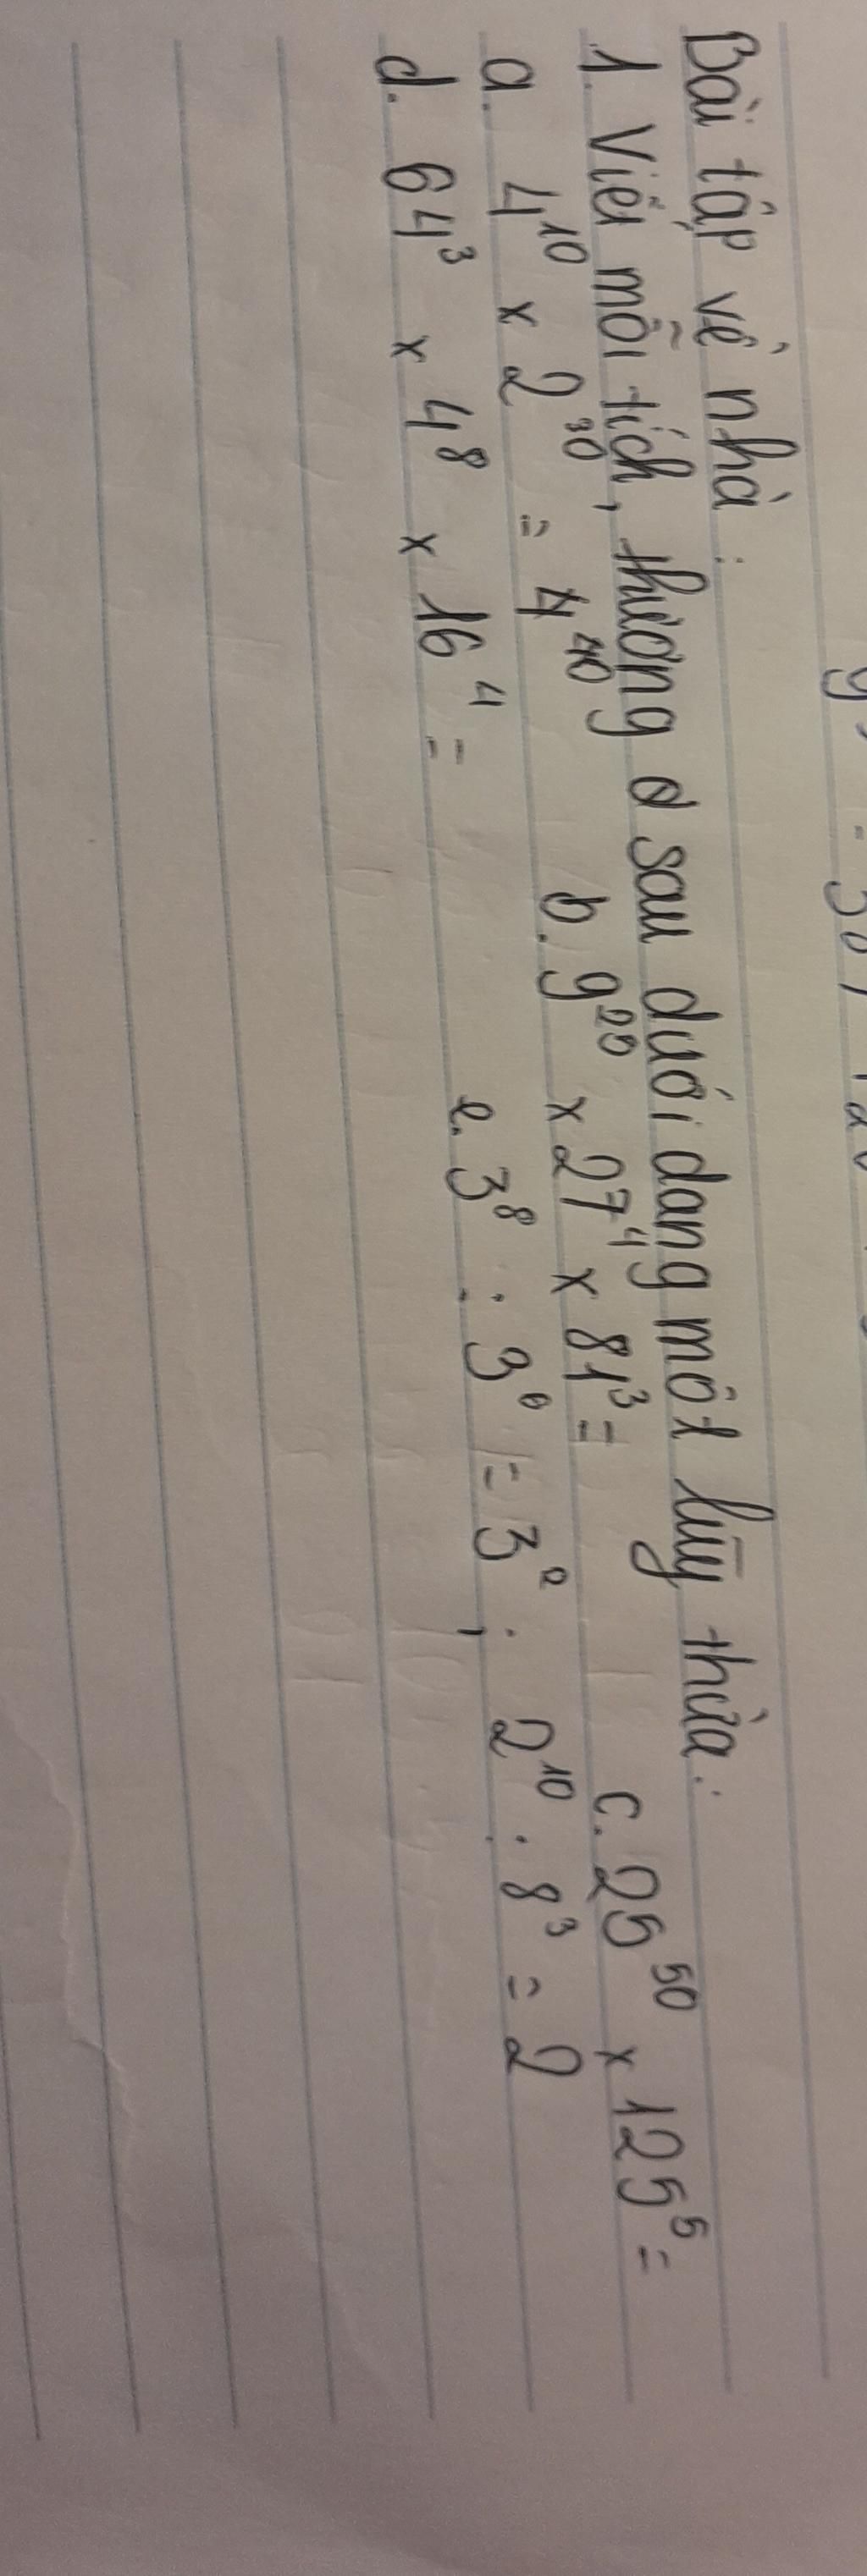 Bài tập về nhà:
1. Viết mỗi tích, thương ở sau dưới dạng một lũy thừa:
a. 4¹⁰ x 2³⁰ = 4⁴⁰ b. 9²⁰ x 27⁴ x 81³ = c. 25⁵⁰ x 125⁵ =
d. 64³ x 4⁸ x 16⁴ = e. 3⁸ : 3⁶ = 3² ; 2¹⁰ : 8³ = 2